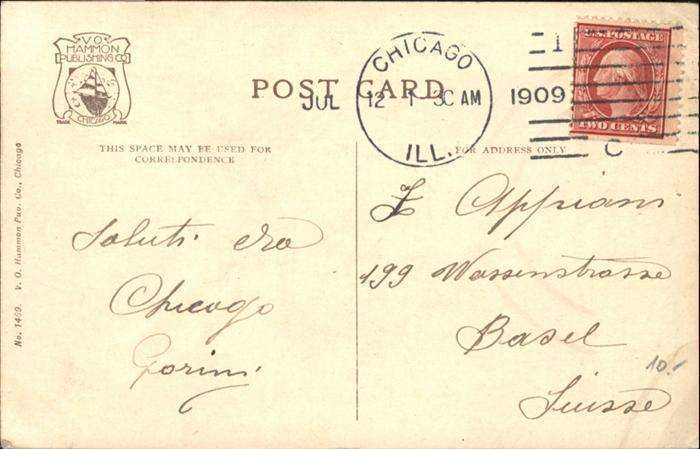 V.O.
HAMMON
PUBLISHING CO
CHICAGO
TRADE MARK
POST CARD
CHICAGO
JUL 12 1 30 AM 1909
ILL.
1
C
U.S. POSTAGE
TWO CENTS
THIS SPACE MAY BE USED FOR
CORRELPONDENCE
FOR ADDRESS ONLY
No. 1469. V. O. Hammon Pub. Co., Chicago
Saluti da
Chicago
Gorini
Appiani
199 Wassenstrasse
Basel
Suisse
10.-